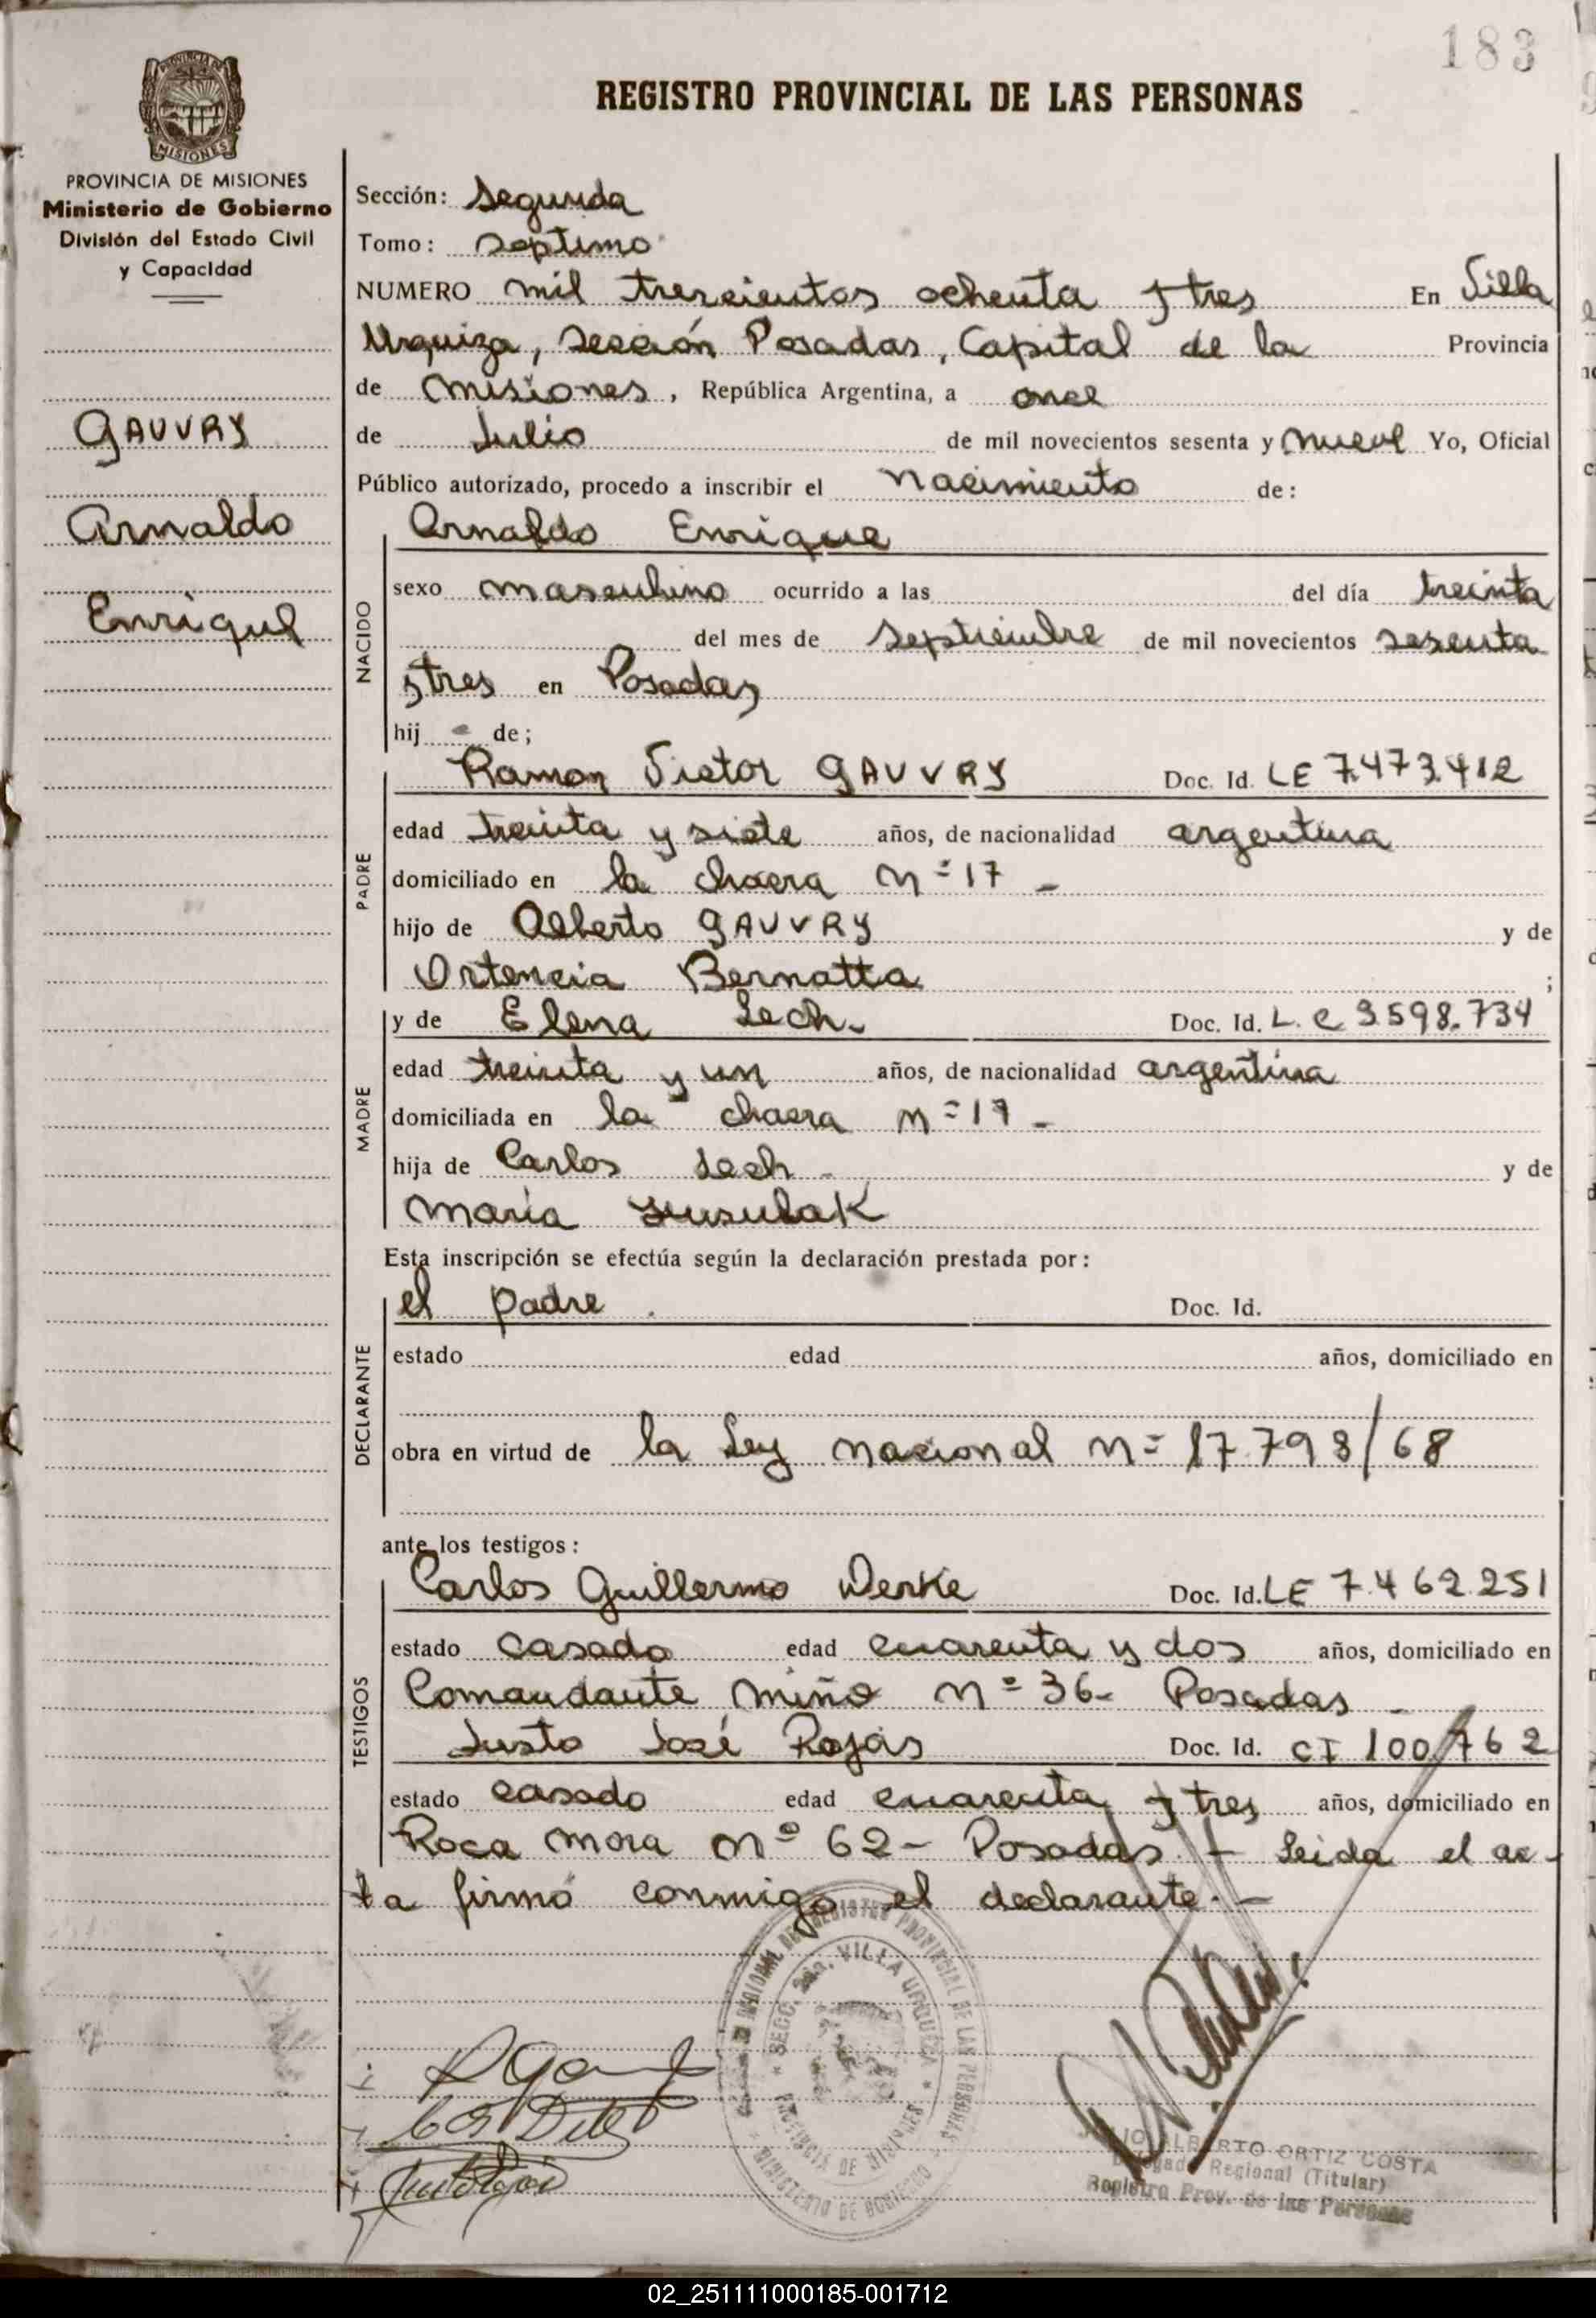 183
PROVINCIA DE MISIONES
REGISTRO PROVINCIAL DE LAS PERSONAS
PROVINCIA DE MISIONES
Ministerio de Gobierno
División del Estado Civil
y Capacidad
GAUVRY
Arnaldo
Enrique
Sección: Segunda
Tomo: Septimo
NUMERO mil trescientos ochenta y tres En Villa
Urquiza, Sección Posadas, Capital de la Provincia
de Misiones, República Argentina, a once
de Julio de mil novecientos sesenta y nueve Yo, Oficial
Público autorizado, procedo a inscribir el Nacimiento de:
NACIDO
Arnaldo Enrique
sexo masculino ocurrido a las del día treinta
del mes de Septiembre de mil novecientos sesenta
y tres en Posadas
hij de;
PADRE
Ramon Victor GAUVRY Doc. Id. LE 7.473.412
edad treinta y siete años, de nacionalidad argentina
domiciliado en la chacra n= 17 -
hijo de Alberto GAUVRY y de
Ortencia Bernatta ;
MADRE
y de Elena Lech. Doc. Id. L.C 3.598.734
edad treinta y un años, de nacionalidad argentina
domiciliada en la chacra n= 17 -
hija de Carlos Lech - y de
Maria
Esta inscripción se efectúa según la declaración prestada por:
DECLARANTE
el padre . Doc. Id.
estado edad años, domiciliado en
obra en virtud de la Ley nacional n= 17.798/68
ante los testigos:
TESTIGOS
Carlos Guillermo Derke Doc. Id. LE 7.462.251
estado casado edad cuarenta y dos años, domiciliado en
Comandante Miño nº 36- Posadas -
Justo José Rojas Doc. Id. CI 100.762
estado casado edad cuarenta y tres años, domiciliado en
Roca Mora nº 62 - Posadas. - Leida el ac-
ta firmó conmigo el declarante. -
SECC. 2da. VILLA URQUIZA
PROVINCIA DE MISIONES
MINISTERIO DE GOBIERNO
JULIO ALBERTO ORTIZ COSTA
Delegado Regional (Titular)
Registro Prov. de las Personas
02_251111000185-001712